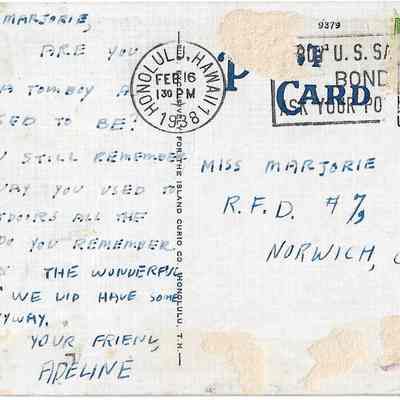 MARJORIE,
ARE YOU
A TOMBOY A
SED TO BE?
U STILL REMEMBER
WAY YOU USED TO
TDOORS ALL THE
DO YOU REMEMBER
THE WONDERFUL
WE DID HAVE SOME
YWAY.
YOUR FRIEND,
ADELINE
HONOLULU, HAWAII
FEB 16
1 30 PM
1938
9379
U.S. SA
BOND
ASK YOUR PO
CARD
FOR THE ISLAND CURIO CO. HONOLULU, T.H.
MISS MARJORIE
R.F.D. #7,
NORWICH, C